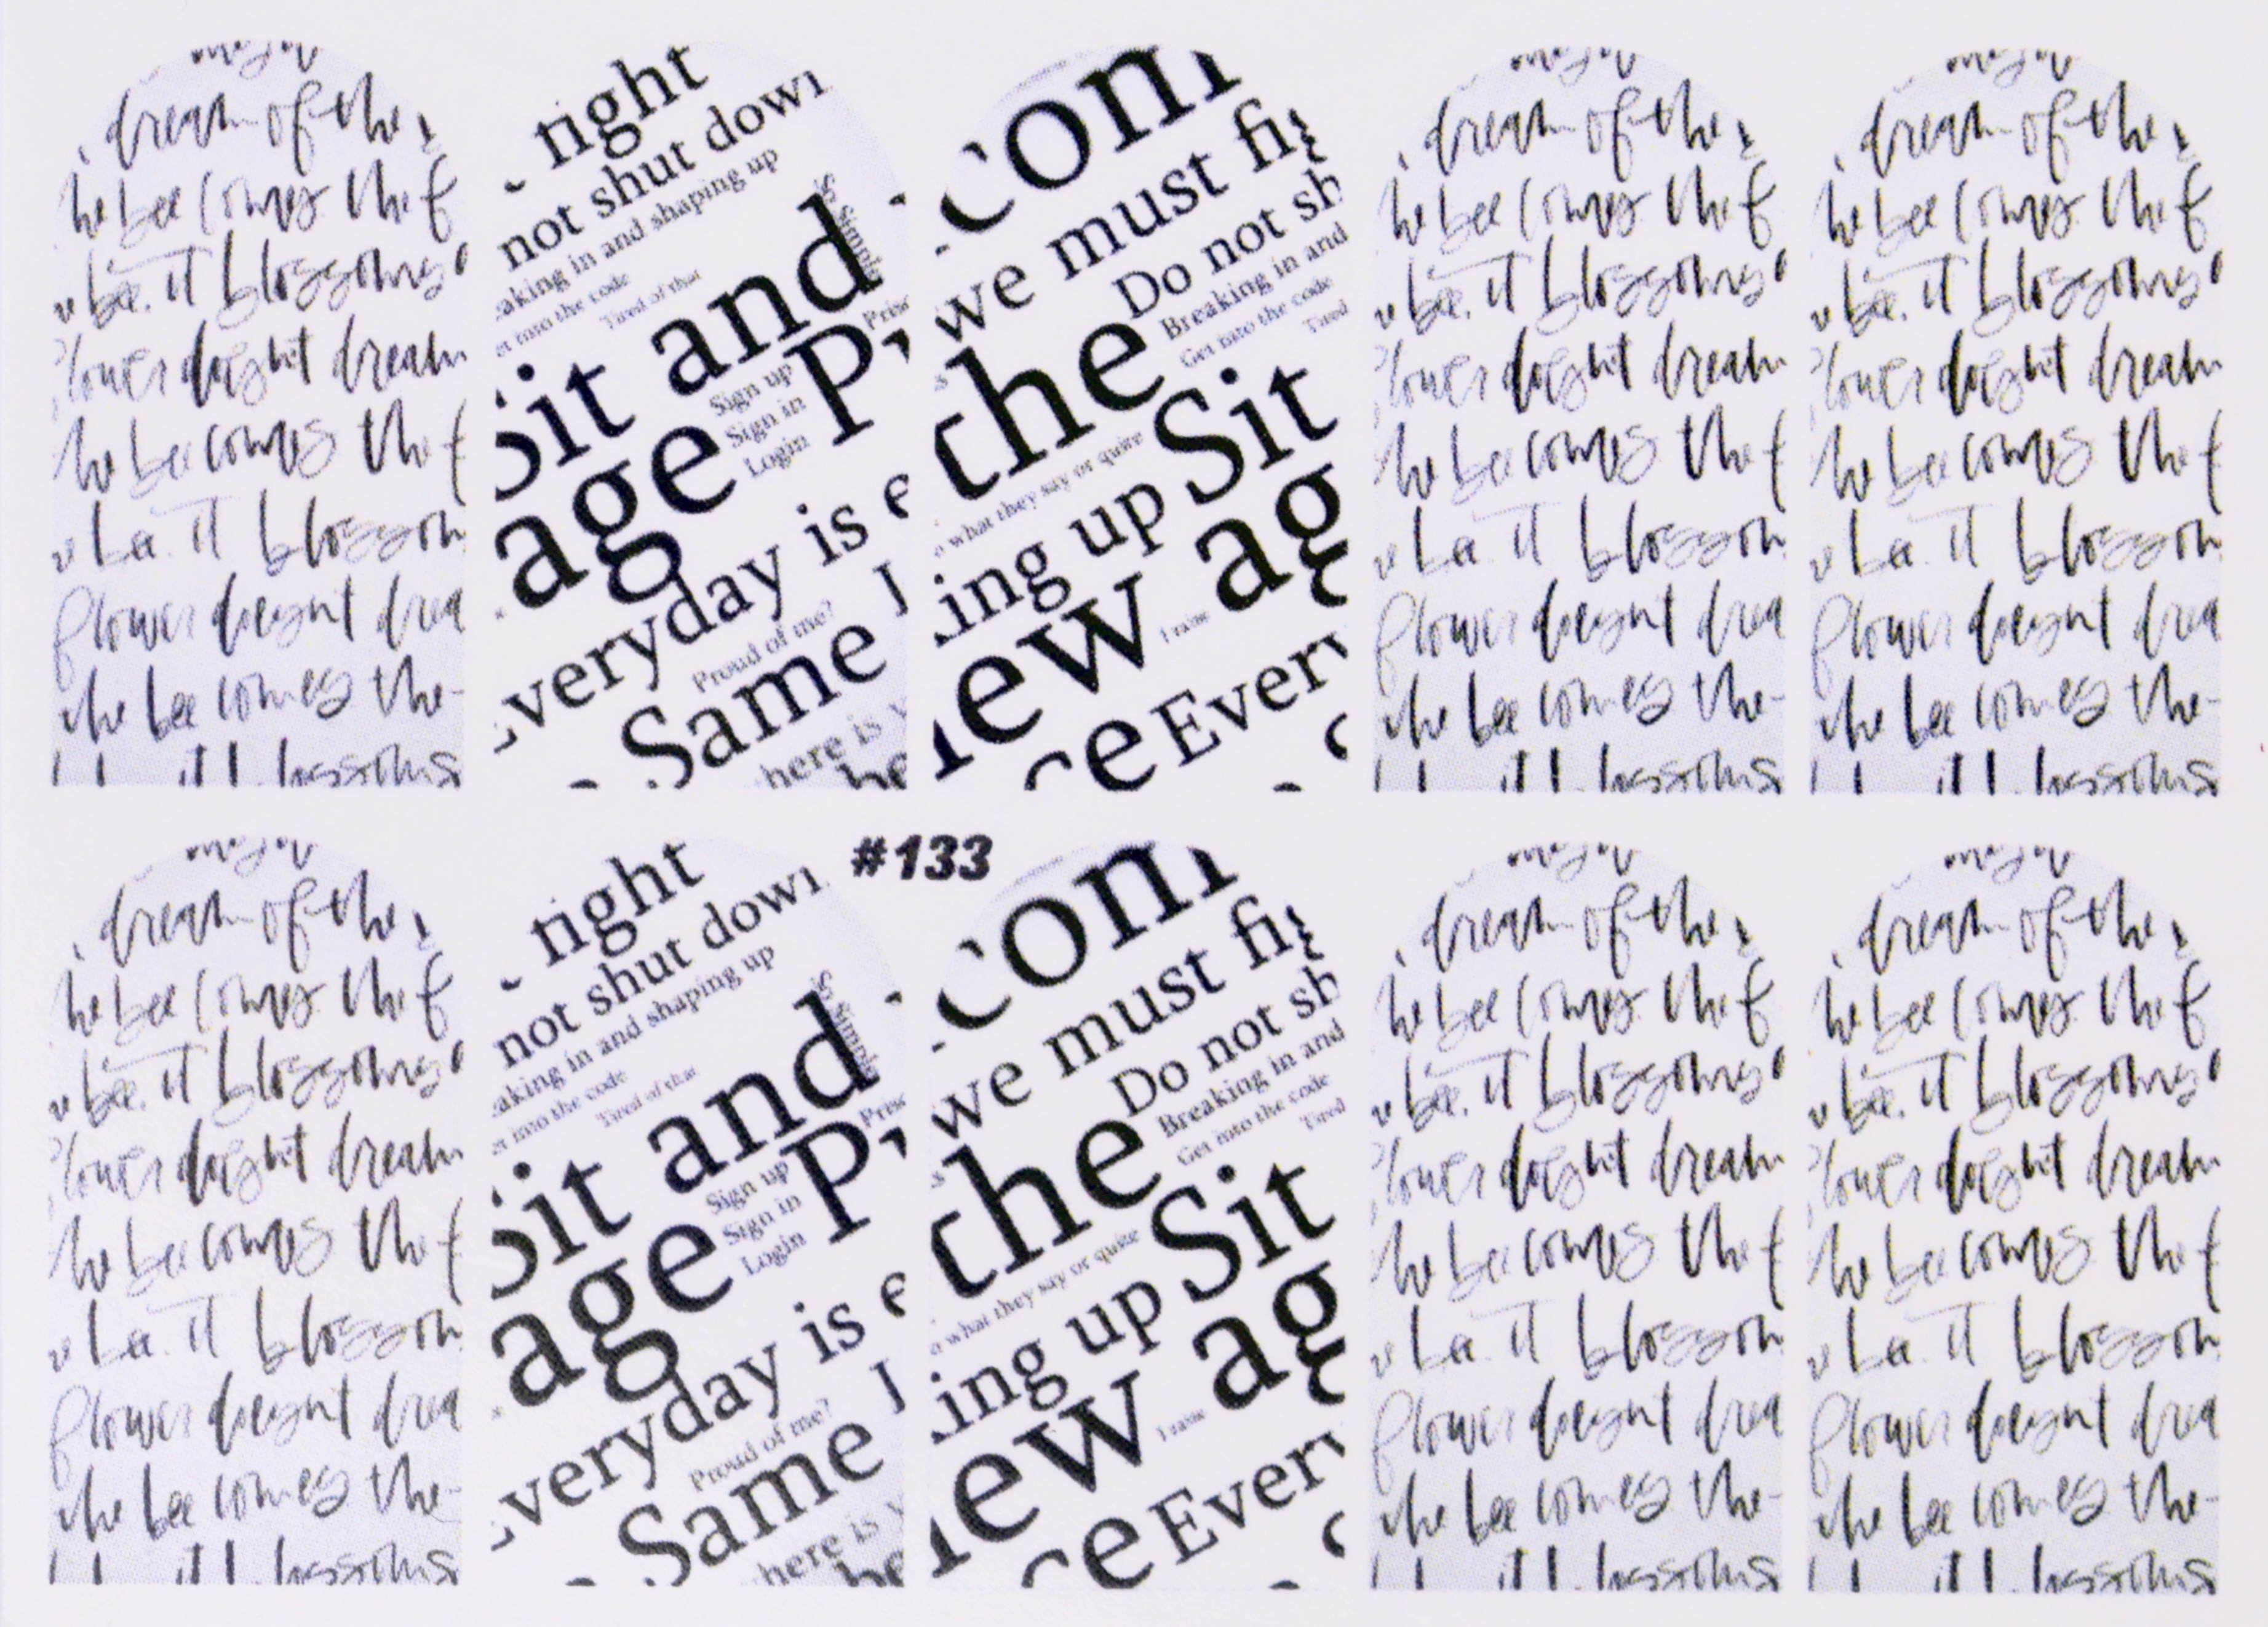 dream of the
he becomes the f
bee. it blossoms
flower doesn't dream
he becomes the f
bee. it blossom
flower doesn't drea
the bee comes the
right
not shut down
aking in and shaping up
et into the code
Tired of that
So simple
Sit and
Prise
age P
Sign up
Sign in
Login
veryday is e
Proud of me?
Same
here is
be
com
we must fi
Do not sh
Breaking in and
Get into the code
Tired
the
Sit
what they say or quite
ing up
ag
new
I raise
ce Every
dream of the
he becomes the f
bee. it blossoms
flower doesn't dream
he becomes the f
bee. it blossom
flower doesn't drea
the bee comes the
dream of the
he becomes the f
bee. it blossoms
flower doesn't dream
he becomes the f
bee. it blossom
flower doesn't drea
the bee comes the
#133
dream of the
he becomes the f
bee. it blossoms
flower doesn't dream
he becomes the f
bee. it blossom
flower doesn't drea
the bee comes the
right
not shut down
aking in and shaping up
et into the code
Tired of that
So simple
Sit and
Prise
age P
Sign up
Sign in
Login
veryday is e
Proud of me?
Same
here is
be
com
we must fi
Do not sh
Breaking in and
Get into the code
Tired
the
Sit
what they say or quite
ing up
ag
new
I raise
ce Every
dream of the
he becomes the f
bee. it blossoms
flower doesn't dream
he becomes the f
bee. it blossom
flower doesn't drea
the bee comes the
dream of the
he becomes the f
bee. it blossoms
flower doesn't dream
he becomes the f
bee. it blossom
flower doesn't drea
the bee comes the